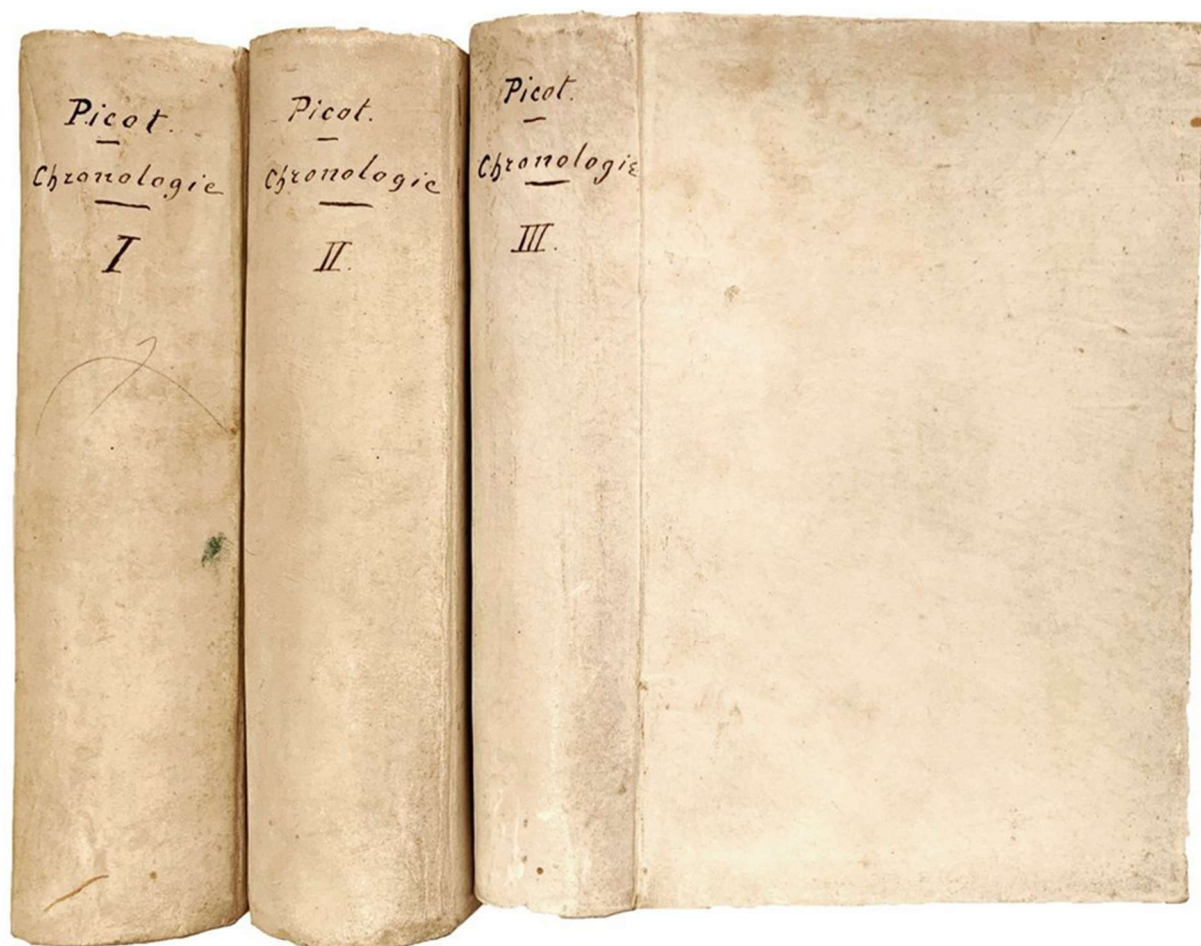 Picot.
Chronologie
I
Picot.
Chronologie
II.
Picot.
Chronologie
III.